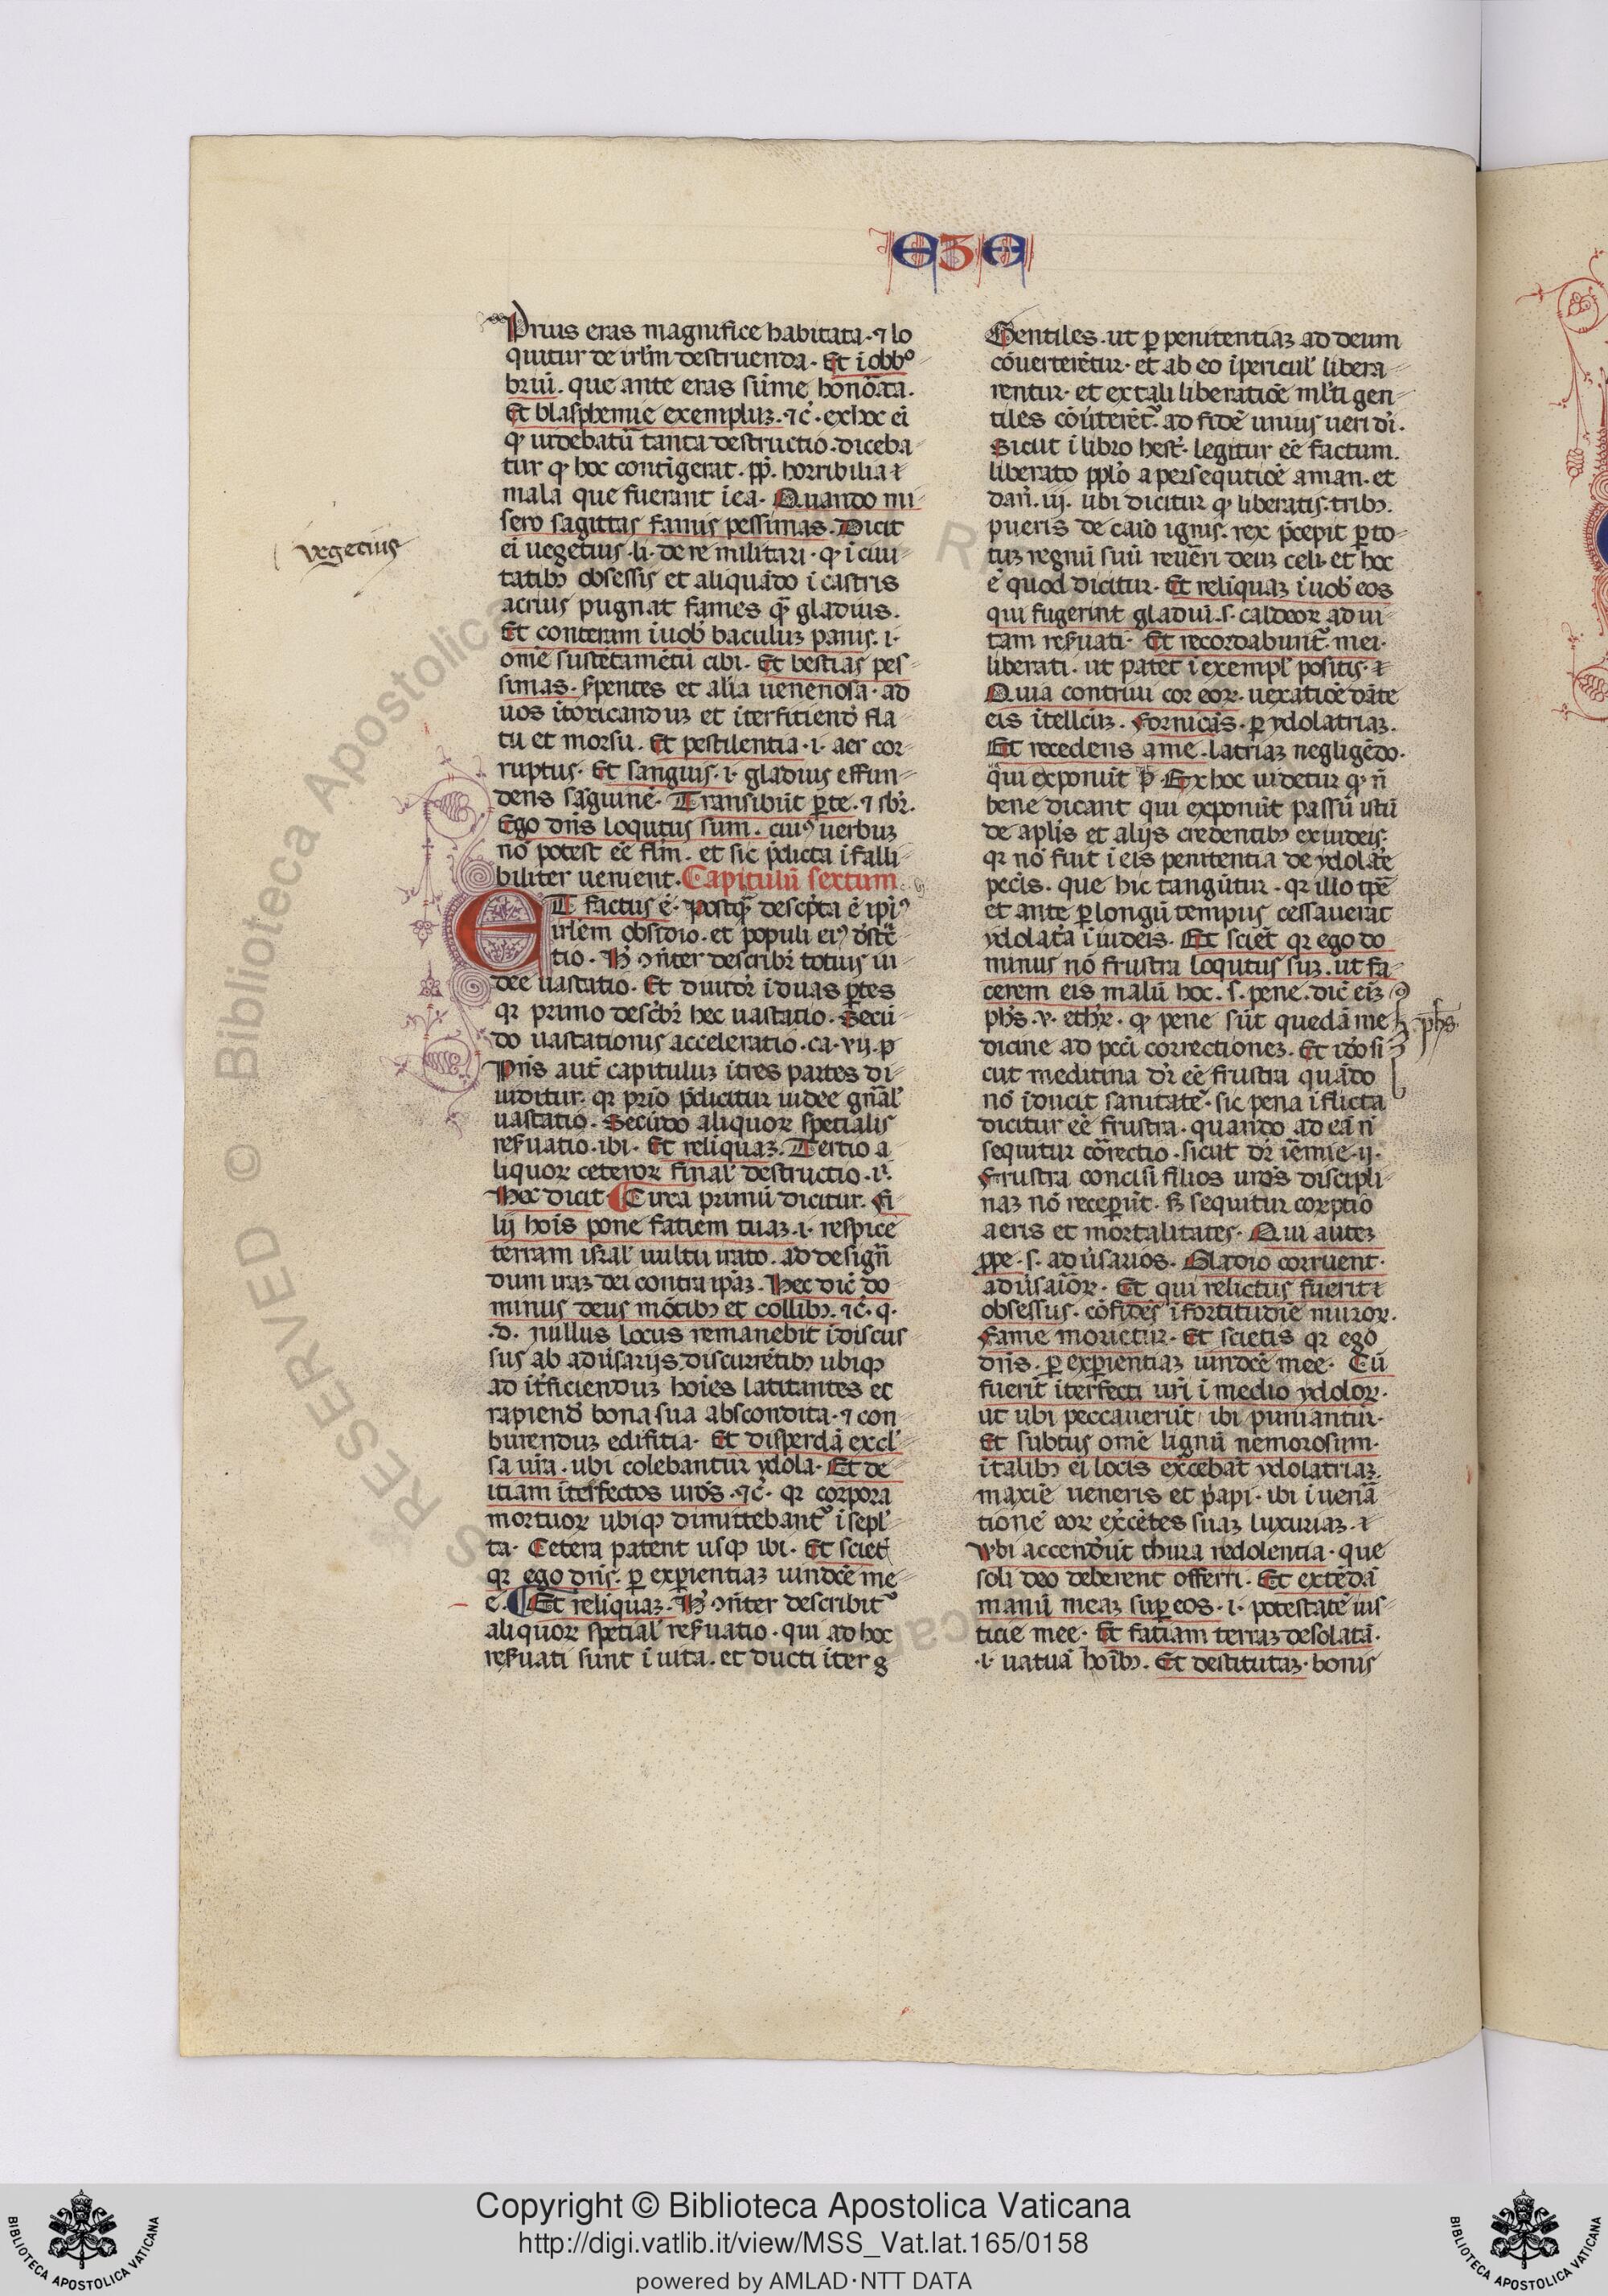 EZE
Prius eras magnifice habitata · ⁊ lo
quitur de irlm̄ destruenda · Et i obbº
briū . que ante eras sūme honōata .
Et blasphemie exempluꝫ . ⁊c̄ · ex hoc ei
ꝙ uidebatū tanta destructio · diceba
tur ꝙ hoc contigerat . ꝓp̄ . horribilia ⁊
mala que fuerant i ea · Quando mi
sero sagittas famis pessimas . Dicit
ei uegetius · li · de re militari · ꝙ i ciui
vegetius
tatibꝫ obsessis et aliquādo i castris
acrius pugnat fames q̄ gladius .
Et conteram i uob̄ baculuꝫ panis . i ·
om̄e sustētamētū cibi · Et bestias pes
simas · s̄pentes et alia uenenosa · ad
uos ītoxicanduꝫ et īterfitiend̄ fla
tu et morsu . Et pestilentia · i · aer cor
ruptus · Et sanguis · i · gladius effun
dens sāguinē · Transibūt ꝑ te · ⁊ sb̄r .
Ego dn̄s loqutus sum . cuiꝰ uerbuꝫ
nō potest eē flm̄ . et sic p̄dicta ifalli
biliter uenient · Capitulū sextum
ET factus ē · Postq̄ desc̄pta ē ip̄iꝰ
irlēm obsidio . et populi eiꝰ dr̄stc̄
tio · H̄ ꝯn̄ter describr̄ totius iu
dee uastatio · Et diuidr̄ i duas ꝑtes
qꝛ primo descb̄r hec uastatio . Secū
do uastationis acceleratio · ca · vij · p
Pn̄s aut̄ capituluꝫ ītres partes di
uiditur · qꝛ prio p̄dicitur iudee gn̄al̄
uastatio . Secūdo aliquoꝝ spetialis
res̄uatio · ibi · Et reliquaꝫ . Tertio a
liquoꝝ ceteroꝝ final̄ destructio · i .
Hec dicit ¶ Circa primū dicitur . Fi
lij hoīs pone fatiem tuaꝫ · i · respice
terram isral̄ uultu irato . ad design̄
dum iraꝫ dei contra ip̄aꝫ . Hec dic̄ do
minus deus mōtibꝫ et collibꝫ . ⁊c̄ · q ·
· d · nullus locus remanebit idiscus
sus ab adūsarijs discurrētibꝫ ubiqꝫ
ad it̄ficienduꝫ hoīes latitantes et
rapiend̄ bona sua abscondita · ⁊ con
burenduꝫ edifitia · Et disperdā excl̄
sa ur̄a . ubi colebantur ydola · Et de
itiam īterfectos uros̄ . ⁊c̄ · qꝛ corpora
mortuoꝝ ubiqꝫ dimittebantˀ i sepl̄
ta · Cetera patent usqꝫ ibi · Et sciet̄
qꝛ ego dn̄s . ꝑ experientiaꝫ uindc̄e me
e . ¶ Et reliquaꝫ . H̄ ꝯn̄ter describitˀ
aliquoꝝ spetial̄ res̄uatio · qui ad hoc
res̄uati sunt i uita . et ducti iter g
Gentiles . ut ꝑ penitentiaꝫ ad deum
cōuerterētur · et ab eo i pericul̄ libera
rentur · et ex tali liberatiōe ml̄ti gen
tiles cōuterētˀ ad fidē unius ueri dī .
Sicut i libro hest̄ · legitur eē factum .
liberato ppl̄o a persequtiōe aman . et
dan̄ . iij . ubi dicitur ꝙ liberatis . tribꝫ .
pueris de caīo ignis . rex p̄cepit ꝑ to
tuꝫ regnū suū reuēri deuꝫ celi · et hoc
ē quod dicitur · Et reliquaꝫ i uob̄ eos
qui fugerint gladiū . s · caldeoꝝ ad ui
tam res̄uati · Et recordabuntˀ mei ·
liberati . ut patet i exempl̄ positis · ⁊
Quia contriui cor eoꝝ · uexatiōe dāte
eis itellc̄uꝫ . fornicās · ꝑ ydolatriaꝫ .
Et recedens a me . latriaꝫ negligēdo ·
qui exponūt p̄ · Ex hoc uidetur ꝙ n̄
bene dicant qui exponūt passū istū
de aplīs et alijs credentibꝫ ex iudeis .
qꝛ nō fuit i eis penitentia de ydolat̄e
pecīs . que hic tangūtur · qꝛ illo tp̄e
et ante ꝑ longū tempus cessauerat
ydolat̄a i iudeis . Et sciet̄ qꝛ ego do
minus nō frustra loqutus suꝫ . ut fa
cerem eis malū hoc . s . pene . dic̄ eiꝫ
phs̄ . v . eth̄r . ꝙ pene sūt quedā me phs̄
dicine ad pcc̄i correctioneꝫ . Et ido si
cut meditina dr̄ eē frustra quādo
nō īducit sanitatē · sic pena i flicta
dicitur eē frustra · quando ad eā n̄
sequitur cōrectio · sicut dr̄ ieͫmie · ij ·
Frustra concisi filios uros̄ discipli
naꝫ nō receper̄ūt . sꝫ sequitur coꝝptio
aeris et mortalitates · Qui auteꝫ
ꝓpe · s · adūsarios · Gladio corruent ·
adūsaioꝝ · Et qui relictus fuerit ⁊
obsessus . cōfidēs i fortitudīe muroꝝ .
fame morietur · Et scietis qꝛ ego
dn̄s . ꝑ experientiaꝫ uindc̄e mee · Cū
fuerīt iterfecti ur̄i i medio ydoloꝝ ·
ut ubi peccauerūt ibi puniantur ·
Et subtus om̄e lignū nemorosum ·
i talibꝫ ei locis exc̄ebat̄ ydolatriaꝫ .
maxīe ueneris et p̄api · ibi i uenā
tionē eoꝝ exc̄ētes suaꝫ luxuriaꝫ · ⁊
Vbi accend̄ūt thura redolentia · que
soli deo deberent offerri · Et extēdā
manū meaꝫ suꝑ eos · i · potestatē ius
ticie mee · Et fatiam terraꝫ desolatā ·
· i · uatuā hoībꝫ . Et destitutaꝫ · bonis
RESERVED © Biblioteca Apostolica
Copyright © Biblioteca Apostolica Vaticana
http://digi.vatlib.it/view/MSS_Vat.lat.165/0158
powered by AMLAD·NTT DATA
BIBLIOTECA APOSTOLICA VATICANA
BIBLIOTECA APOSTOLICA VATICANA